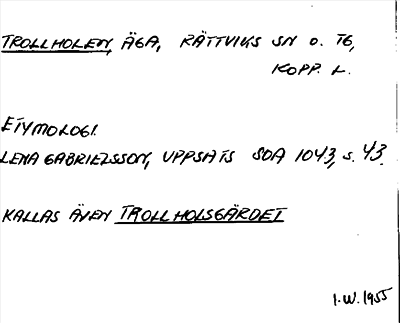 TROLLHOLEN, ÄGA, RÄTTVIKS SN O. TG,
KOPP. L.
ETYMOLOGI.
LENA GABRIELSSON, UPPSATS SOA 1043, S. 43.
KALLAS ÄVEN TROLLHOLSGÄRDET
I.W. 1955